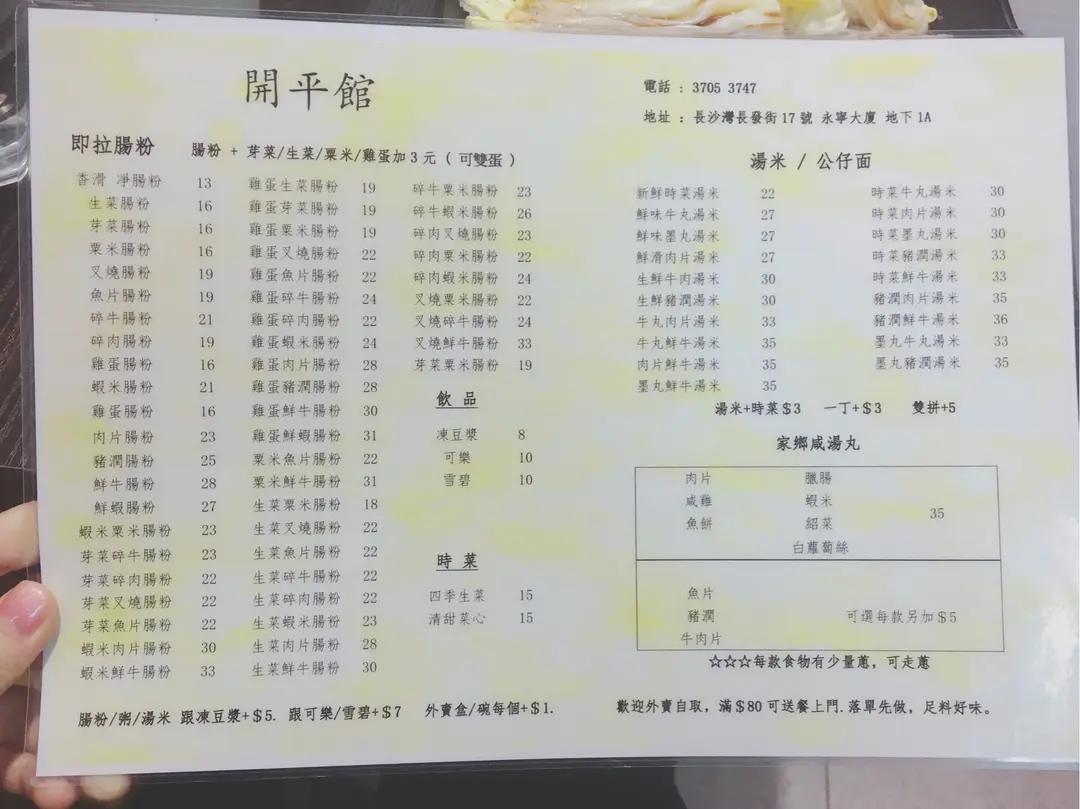 開平館
電話 : 3705 3747
地址 : 長沙灣長發街17號 永寧大廈 地下1A
即拉腸粉 腸粉 + 芽菜/生菜/粟米/雞蛋加3元 ( 可雙蛋 )
香滑 凈腸粉 13
生菜腸粉 16
芽菜腸粉 16
粟米腸粉 16
叉燒腸粉 19
魚片腸粉 19
碎牛腸粉 21
碎肉腸粉 19
雞蛋腸粉 16
蝦米腸粉 21
雞蛋腸粉 16
肉片腸粉 23
豬潤腸粉 25
鮮牛腸粉 28
鮮蝦腸粉 27
蝦米粟米腸粉 23
芽菜碎牛腸粉 23
芽菜碎肉腸粉 22
芽菜叉燒腸粉 22
芽菜魚片腸粉 22
蝦米肉片腸粉 30
蝦米鮮牛腸粉 33
雞蛋生菜腸粉 19
雞蛋芽菜腸粉 19
雞蛋粟米腸粉 19
雞蛋叉燒腸粉 22
雞蛋魚片腸粉 22
雞蛋碎牛腸粉 24
雞蛋碎肉腸粉 22
雞蛋蝦米腸粉 24
雞蛋肉片腸粉 28
雞蛋豬潤腸粉 28
雞蛋鮮牛腸粉 30
雞蛋鮮蝦腸粉 31
粟米魚片腸粉 22
粟米鮮牛腸粉 31
生菜粟米腸粉 18
生菜叉燒腸粉 22
生菜魚片腸粉 22
生菜碎牛腸粉 22
生菜碎肉腸粉 22
生菜蝦米腸粉 23
生菜肉片腸粉 28
生菜鮮牛腸粉 30
碎牛粟米腸粉 23
碎牛蝦米腸粉 26
碎肉叉燒腸粉 23
碎肉粟米腸粉 22
碎肉蝦米腸粉 24
叉燒粟米腸粉 22
叉燒碎牛腸粉 24
叉燒鮮牛腸粉 33
芽菜粟米腸粉 19
飲 品
凍豆漿 8
可樂 10
雪碧 10
時 菜
四季生菜 15
清甜菜心 15
腸粉/粥/湯米 跟凍豆漿+$5. 跟可樂/雪碧+$7 外賣盒/碗每個+$1.
湯米 / 公仔面
新鮮時菜湯米 22
鮮味牛丸湯米 27
鮮味墨丸湯米 27
鮮滑肉片湯米 27
生鮮牛肉湯米 30
生鮮豬潤湯米 30
牛丸肉片湯米 33
牛丸鮮牛湯米 35
肉片鮮牛湯米 35
墨丸鮮牛湯米 35
時菜牛丸湯米 30
時菜肉片湯米 30
時菜墨丸湯米 30
時菜豬潤湯米 33
時菜鮮牛湯米 33
豬潤肉片湯米 35
豬潤鮮牛湯米 36
墨丸牛丸湯米 33
墨丸豬潤湯米 35
湯米+時菜$3 一丁+$3 雙拼+5
家鄉咸湯丸
肉片 臘腸
咸雞 蝦米 35
魚餅 紹菜
白蘿蔔絲
魚片
豬潤 可選每款另加$5
牛肉片
☆☆☆每款食物有少量蔥，可走蔥
歡迎外賣自取，滿$80可送餐上門.落單先做，足料好味。